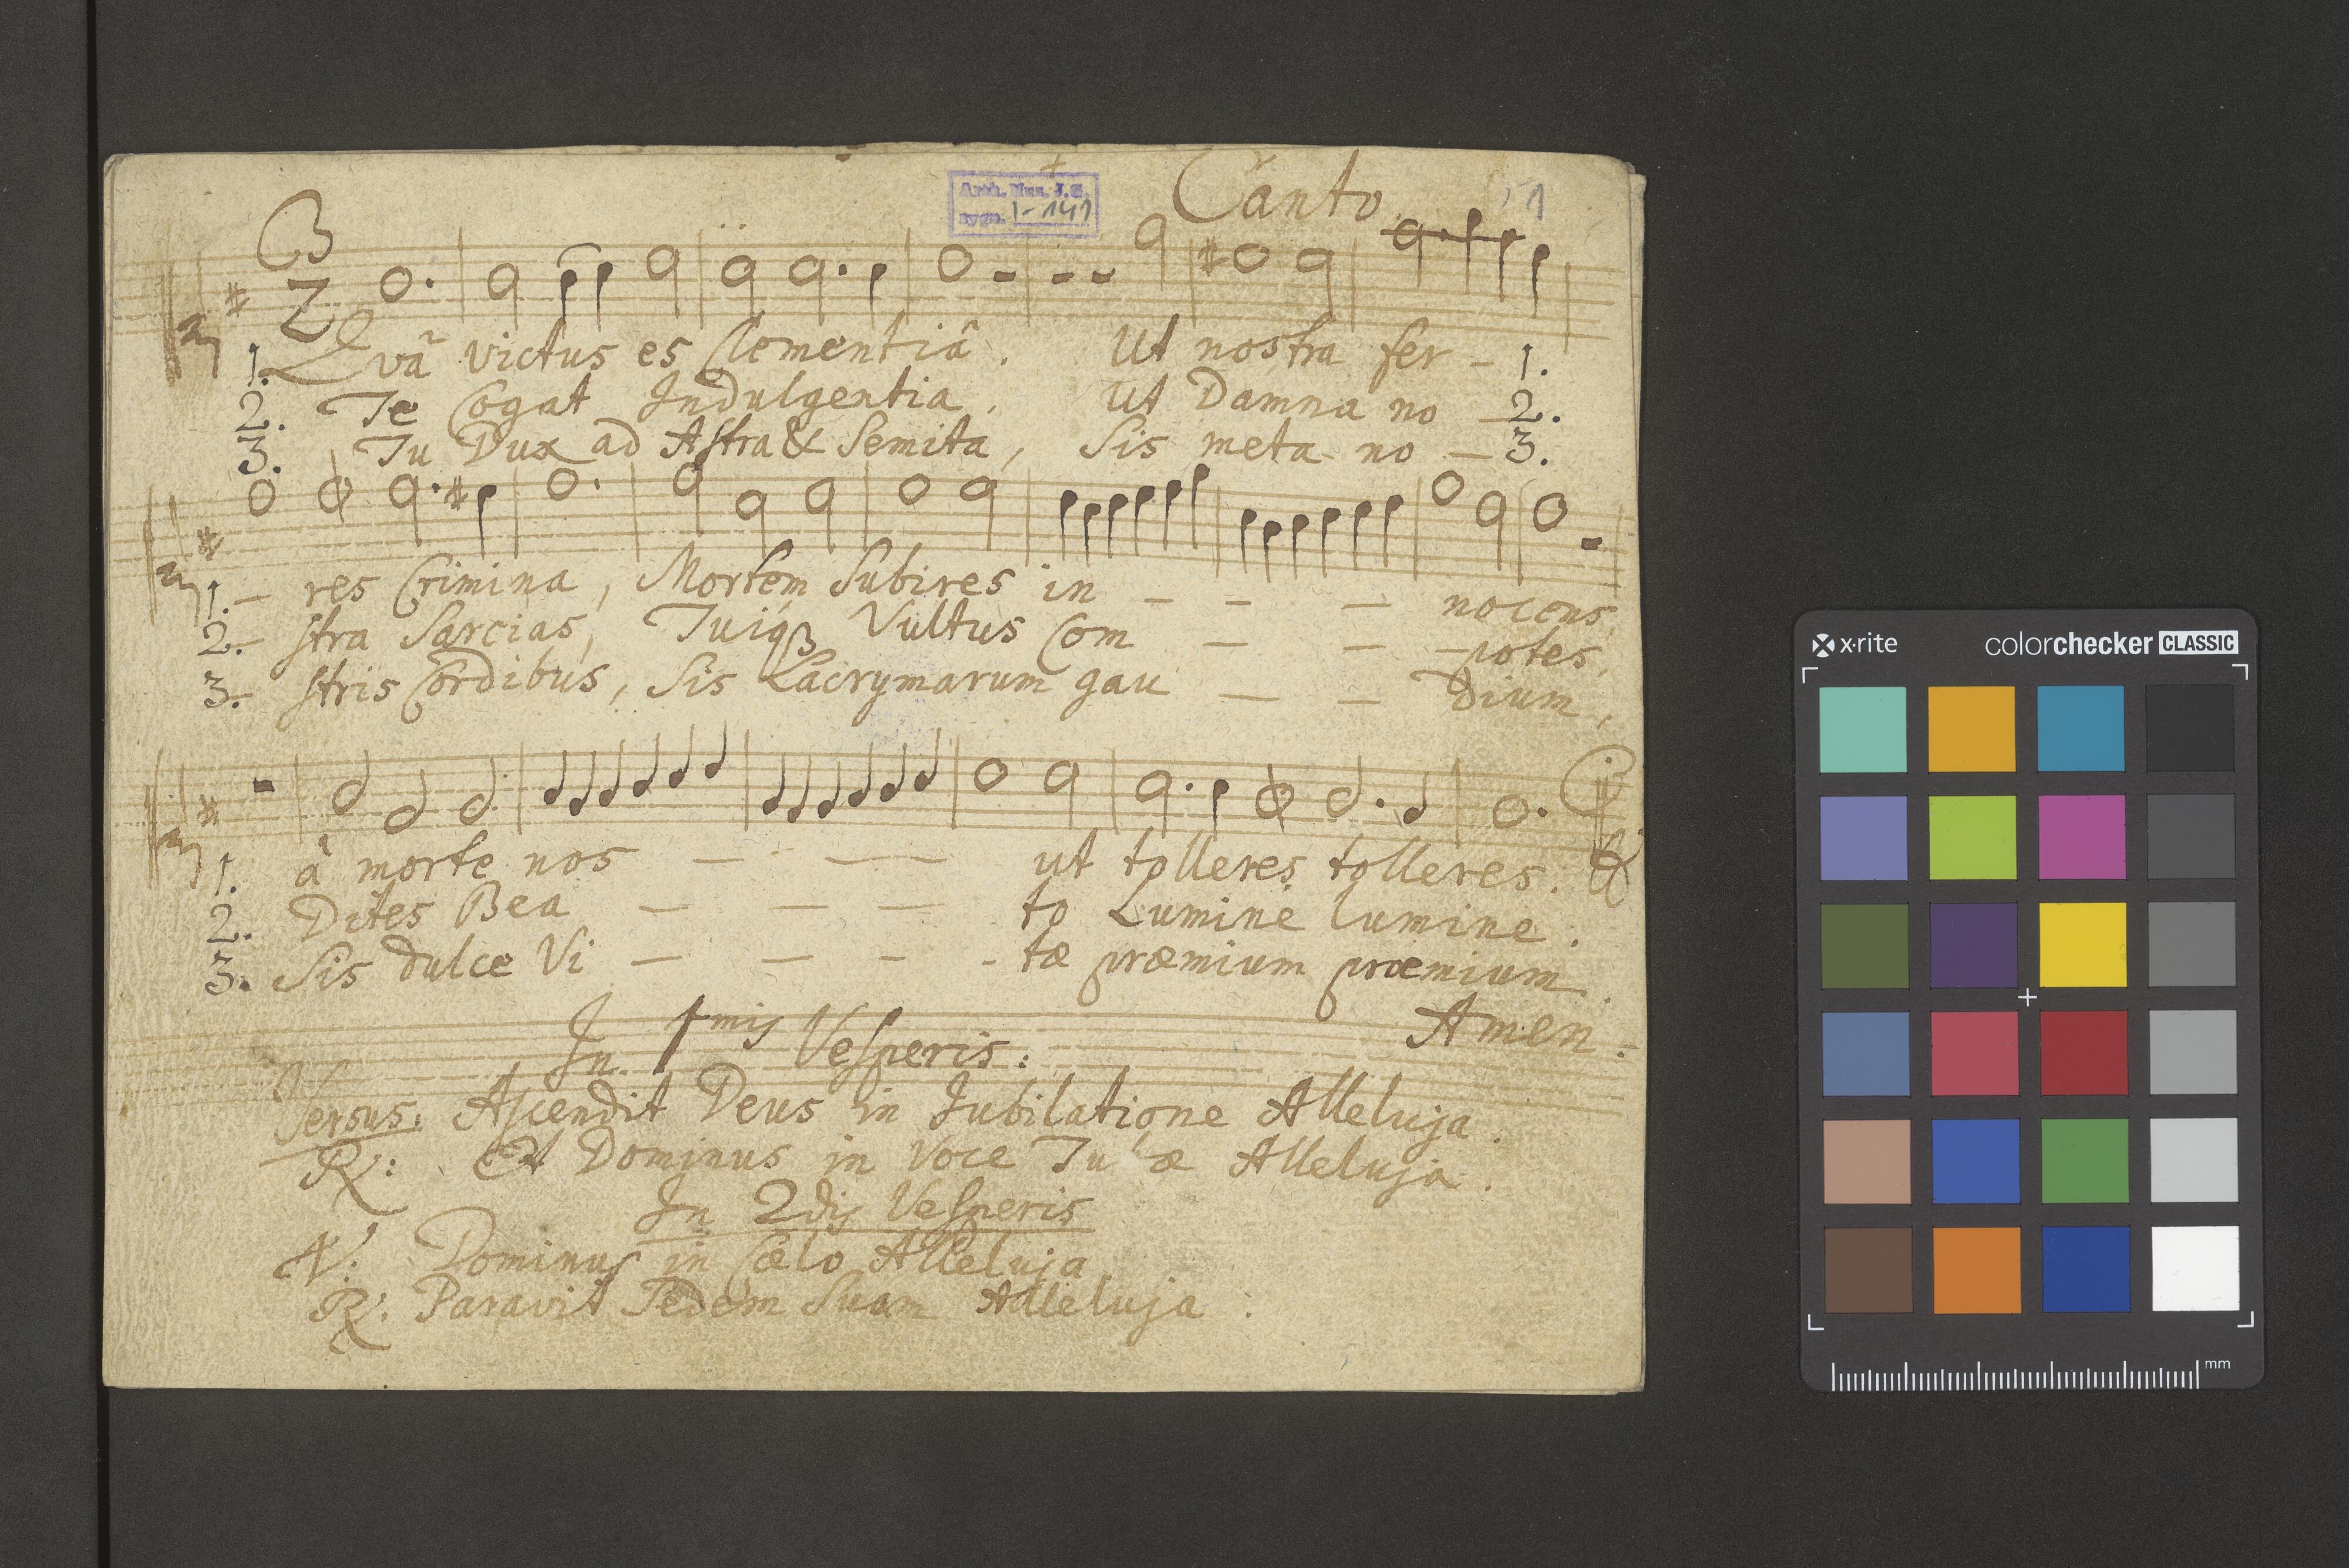 Canto
1
Arch. Mus. J.G.
sygn. I-141
3
2
1. Qvã victus es Clementiâ. Ut nostra fer - 1.
2. Te Cogat Indulgentia, ut Damna no - 2.
3. Tu Dux ad Astra & Semita, Sis meta no - 3.
1. - res Crimina, Mortem Subires in - - - nocens,
2. - stra Sarcias, Tuiqꝫ Vultus Com - - - potes,
3. - stris Cordibus, Sis Lacrymarum gau - - dium,
1. â morte nos - - - - ut tolleres tolleres.
2. Dites Bea - - - to Lumine lumine.
3. Sis dulce Vi - - - - tæ præmium præmium.
Amen.
In 1mis Vesperis:
Versus: Ascendit Deus in Jubilatione Alleluja.
R: Et Dominus in Voce Tubæ Alleluja.
In 2dis Vesperis
V: Dominus in Cælo Alleluja
R: Paravit Sedem Suam Alleluja:
x·rite colorchecker CLASSIC
mm